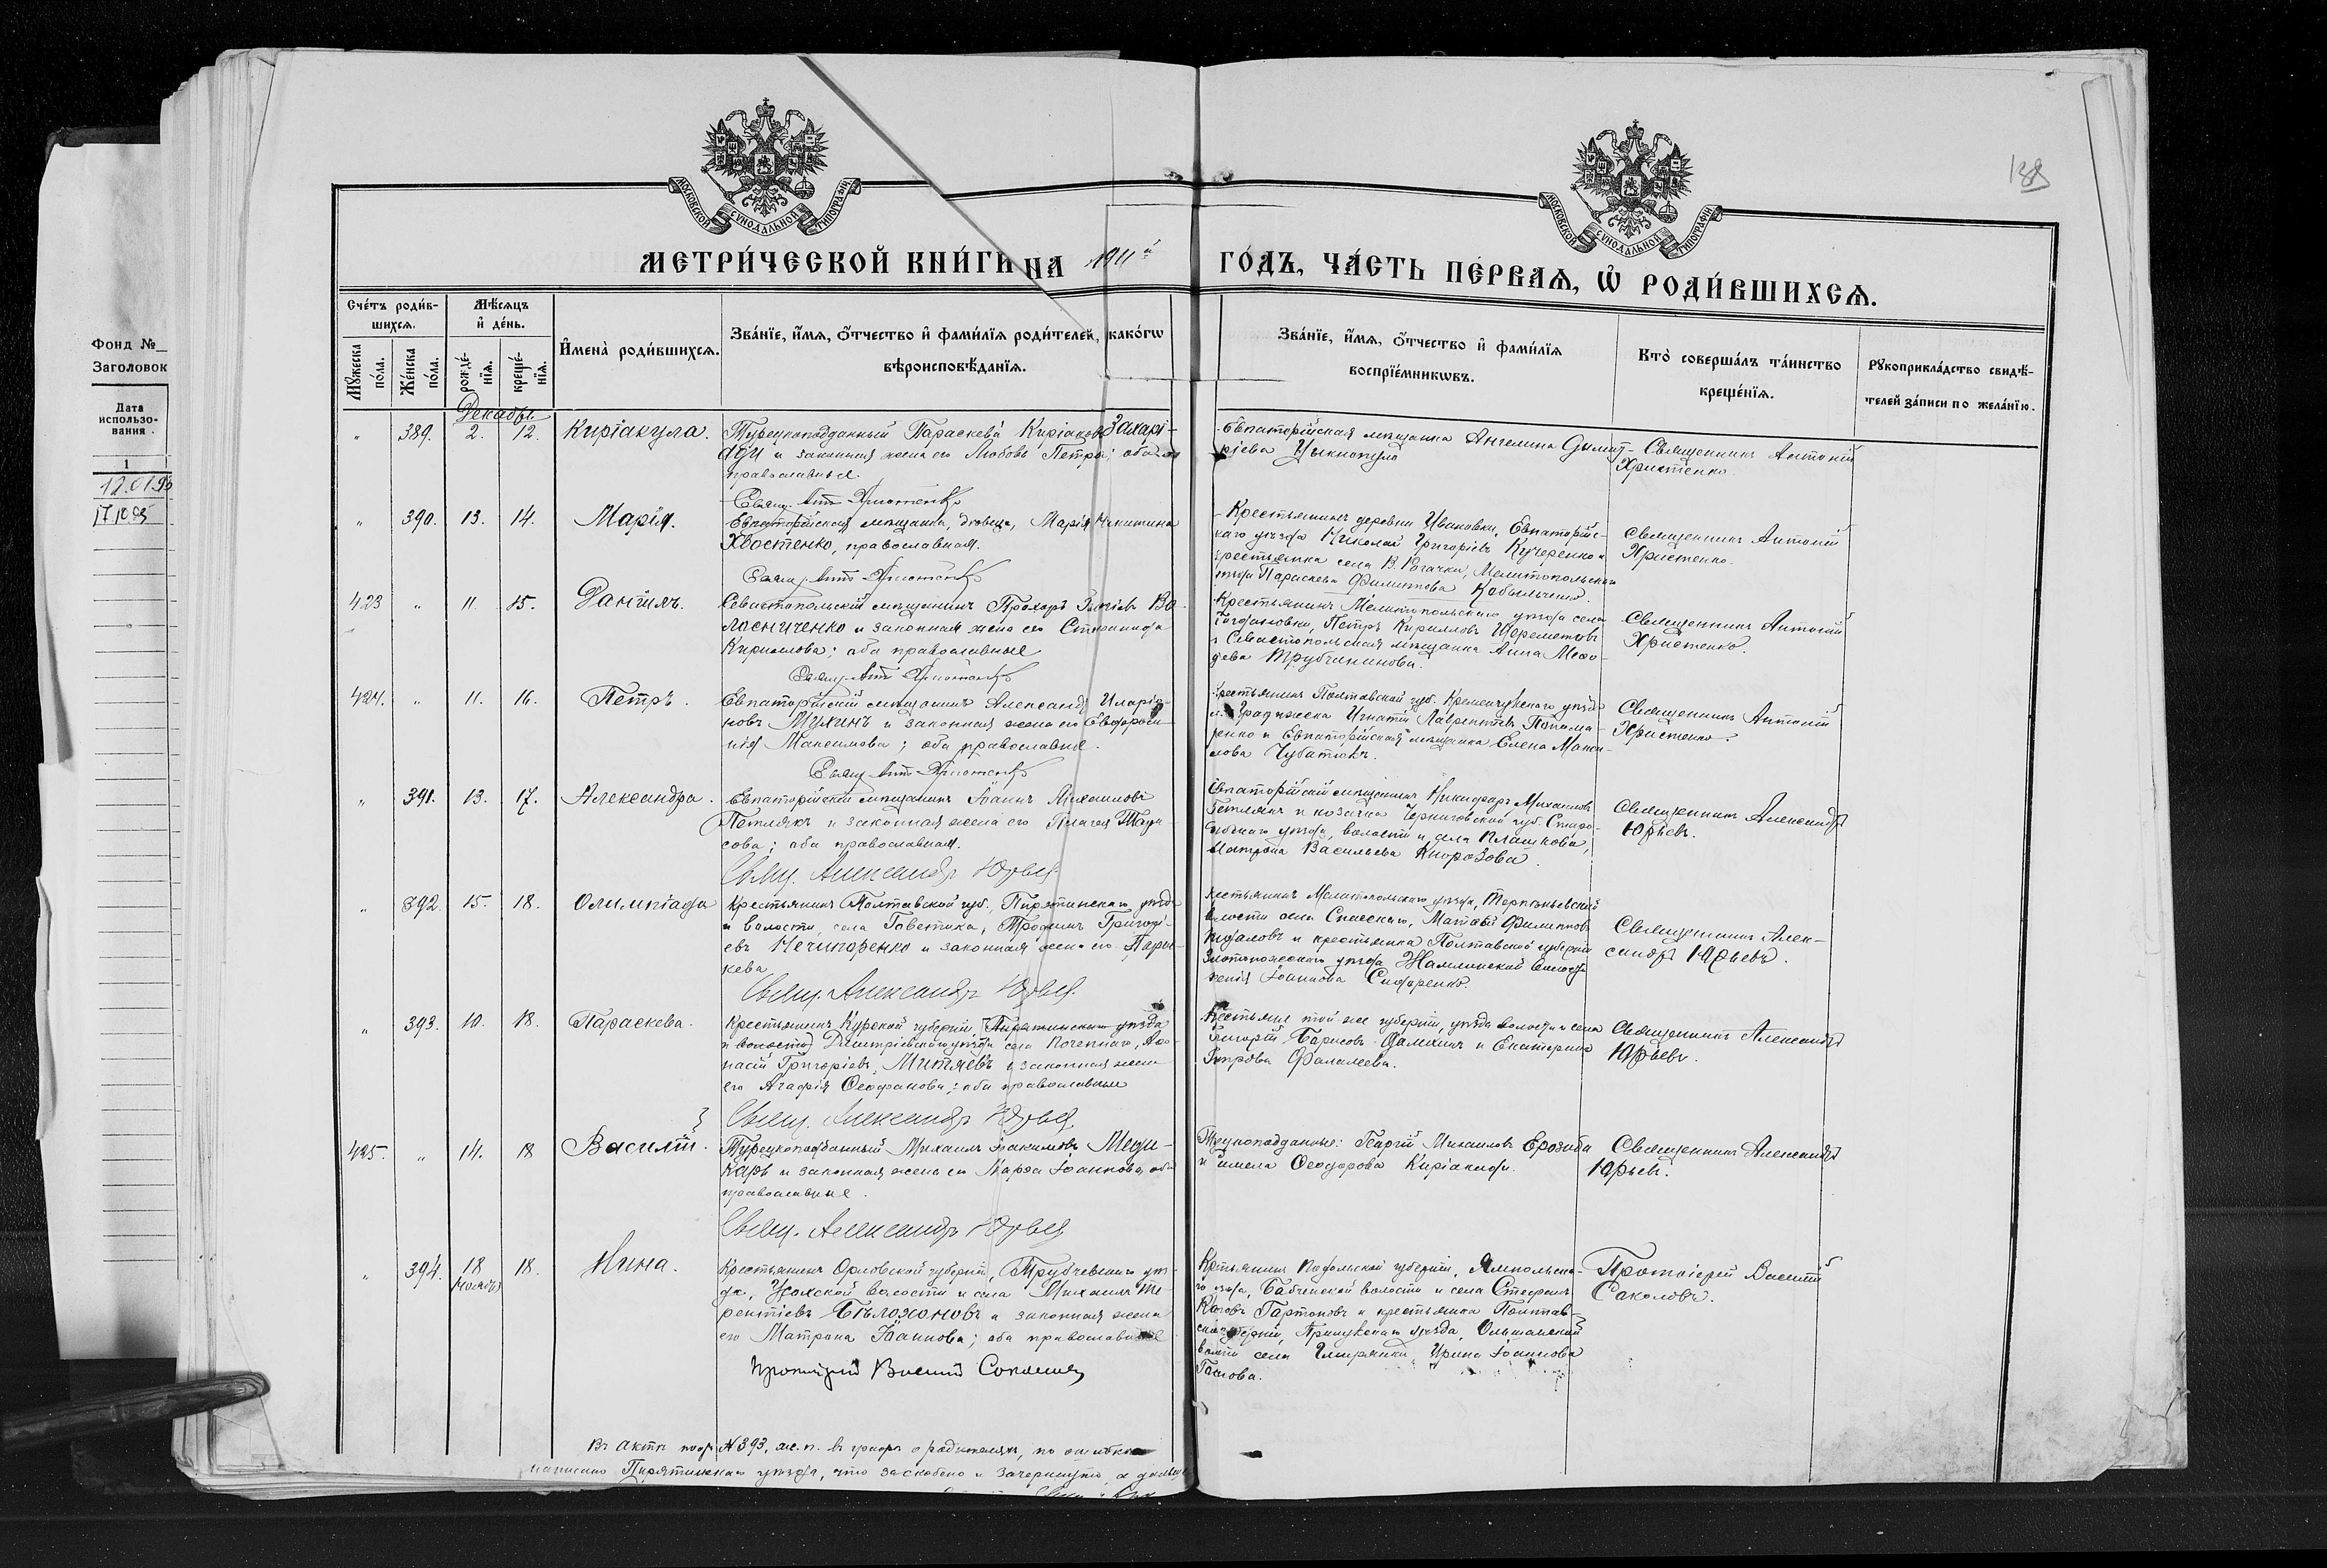 138
МОСКОВСКОЙ СѴНОДАЛЬНОЙ ТИПОГРАФІИ
МОСКОВСКОЙ СѴНОДАЛЬНОЙ ТИПОГРАФІИ
МЕТРИ́ЧЕСКОЙ КНИ́ГИ НА 1911й ГО́ДЪ, ЧА́СТЬ ПЕ́РВАѦ, Ѡ҆ РОДИ́ВШИХСѦ.
Фонд №
Заголовок
Дата
использо-
вания
1
12.01.93
17.10.95
Сче́тъ роди́в-
шихсѧ.
Мꙋ́жеска по́ла.
Же́нска по́ла.
Мѣ́сѧцъ
и҆ де́нь.
рожде́-
нїѧ.
креще́-
нїѧ.
И҆мена̀ роди́вшихсѧ.
Зва́нїе, и҆́мѧ, ѻ҆́тчество и҆ фами́лїѧ роди́телей, како́гѡ
вѣроисповѣ́данїѧ.
Зва́нїе, и҆́мѧ, ѻ҆́тчество и҆ фами́лїѧ
воспрїе́мникѡвъ.
Кто̀ соверша́лъ та́инство
креще́нїѧ.
Рꙋкоприкла́дство свидѣ́-
телей за́писи по жела́нїю.
Декабрь
" 389. 2. 12. Киріакула.
Турецкоподданный Параскева Киріаковъ Захарі-
ади и законная жена его Любовь Петра; оба
православные.
Свящ. Ант. Христенко
Евпаторійская мѣщанка Ангелина Димит-
ріева Цыкнопуло
Священникъ Антоній
Христенко.
" 390. 13. 14. Марія.
Евпаторійская мѣщанка, вдовица, Марія Никитина
Хвостенко, православная.
Свящ. Ант. Христенко
Крестьянинъ деревни Ивановки, Евпаторійс-
каго уѣзда Николай Григоріевъ Кучеренко и
крестьянка села В. Рогачки, Мелитопольскаго
уѣзда Параскева Филиппова Кобыльченко.
Священникъ Антоній
Христенко.
423 " 11. 15. Даніилъ.
Севастопольскій мѣщанинъ Прохоръ
ласниченко и законная жена его Степанида
Кириллова; оба православные
Свящ. Ант. Христенко
Крестьянинъ Мелитопольскаго уѣзда села
Петръ Кирилловъ Шереметовъ
и Севастопольская мѣщанка Анна
Трубчанинова.
Священникъ Антоній
Христенко.
424. " 11. 16. Петръ.
Евпаторійскій мѣщанинъ Александръ Иларіо-
новъ Мухинъ и законная жена его Евфроси-
нія Максимова; оба православные.
Свящ. Ант. Христенко
Крестьянинъ Полтавской губ. Кременчугскаго уѣзда
м. Градижска Игнатій Лаврентіевъ Понома-
ренко и Евпаторійская мѣщанка Елена Макси-
мова Чубатюкъ.
Священникъ Антоній
Христенко.
" 391. 13. 17. Александра.
Евпаторійскій мѣщанинъ Іоаннъ Михаиловъ
Петлякъ и законная жена его Пелагея Тара-
сова; оба православныя.
Свящ. Александръ Юрьевъ
Евпаторійскій мѣщанинъ Никифоръ Михаиловъ
Петлякъ и козачка Черниговской губ. Старо-
дубскаго уѣзда, волости и села Плашкова,
Матрона Васильева
Священникъ Александръ
Юрьевъ.
" 392. 15. 18. Олимпіада
Крестьянинъ Полтавской губ., Пирятинскаго уѣзда
и волости, села Трофимъ Григорі-
евъ Нечипоренко и законная жена его Парас-
кева
Свящ. Александръ Юрьевъ.
Крестьянинъ Мелитопольскаго уѣзда, Терпѣньевской
волости села Спасскаго, Матвѣй Филипповъ
и крестьянка Полтавской губерніи
Золотоношскаго уѣзда
Іоаннова Сидоренко.
Священникъ Алек-
сандръ Юрьевъ.
" 393. 10. 18. Параскева.
Крестьянинъ Курской губерніи, [Пирятинскаго уѣзда
и волости] Дмитріевскаго уѣзда села Поченнаго, Аѳа-
насій Григоріевъ Митяевъ и законная жена
его Агафія Ѳеофанова; оба православные
Свящ. Александръ Юрьевъ
Крестьяне той же губерніи, уѣзда волости и села
Григорій Борисовъ и Екатерина
Петрова Фалалеева.
Священникъ Александръ
Юрьевъ.
425. " 14. 18 Василій.
Турецкоподданный Михаилъ Іоакимовъ Меди-
каръ и законная жена его Марѳа Іоаннова, оба
православные.
Свящ. Александръ Юрьевъ
Турецкоподданые: Георгій Михаиловъ
и Ѳеодорова Киріакиди.
Священникъ Александръ
Юрьевъ.
" 394. 18 ноября 18. Нина.
Крестьянинъ Орловской губерніи, Трубчевскаго уѣз-
да, волости и села Михаилъ Те-
рентіевъ Бѣлохоновъ и законная жена
его Матрона Іоаннова; оба православные
Протоіерей Василій Соколовъ
Крестьянинъ Подольской губерніи, Ямпольска-
го уѣзда, Бабчинской волости и села Стефанъ
и крестьянка Полтав-
ской губерніи, Прилукскаго уѣзда, Ольшанской
волости села Гмырянки Ирина Іоаннова
Протоіерей Василій
Соколовъ.
Въ актѣ подъ № 393, ж. п. въ графѣ о родителяхъ, по ошибкѣ
написано Пирятинскаго уѣзда, что заскоблено и зачеркнуто, а